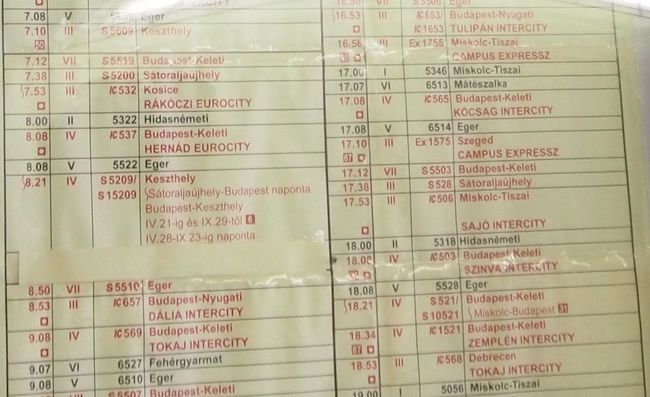 7.08 V Eger
7.10 III S5609 Keszthely
7.12 VII S5519 Budapest-Keleti
7.38 III S5200 Sátoraljaújhely
7.53 III IC532 Kosice
RÁKÓCZI EUROCITY
8.00 II 5322 Hidasnémeti
8.08 IV IC537 Budapest-Keleti
HERNÁD EUROCITY
8.08 V 5522 Eger
8.21 IV S5209/ Keszthely
S15209 Sátoraljaújhely-Budapest naponta
Budapest-Keszthely
IV.21-ig és IX.29-től 6
IV.28-IX 23-ig naponta
8.50 VII S5510 Eger
8.53 III IC657 Budapest-Nyugati
DÁLIA INTERCITY
9.08 IV IC569 Budapest-Keleti
TOKAJ INTERCITY
9.07 VI 6527 Fehérgyarmat
9.08 V 6510 Eger
VII S5507 Budapest-Keleti
16.50 VII S5506 Eger
16.53 III IC653/ Budapest-Nyugati
IC1653 TULIPÁN INTERCITY
16.56 III Ex1755 Miskolc-Tiszai
CAMPUS EXPRESSZ
17.00 I 5346 Miskolc-Tiszai
17.07 VI 6513 Mátészalka
17.08 IV IC565 Budapest-Keleti
KÓCSAG INTERCITY
17.08 V 6514 Eger
17.10 III Ex1575 Szeged
CAMPUS EXPRESSZ
17.12 VII S5503 Budapest-Keleti
17.38 III S528 Sátoraljaújhely
17.53 III IC506 Miskolc-Tiszai
SAJÓ INTERCITY
18.00 II 5318 Hidasnémeti
18.08 IV IC503 Budapest-Keleti
SZINVA INTERCITY
18.08 V 5528 Eger
18.21 IV S521/ Budapest-Keleti
S10521 Miskolc-Budapest 31
18.34 IV IC1521 Budapest-Keleti
ZEMPLÉN INTERCITY
18.53 III IC568 Debrecen
TOKAJ INTERCITY
19.00 I 5056 Miskolc-Tiszai